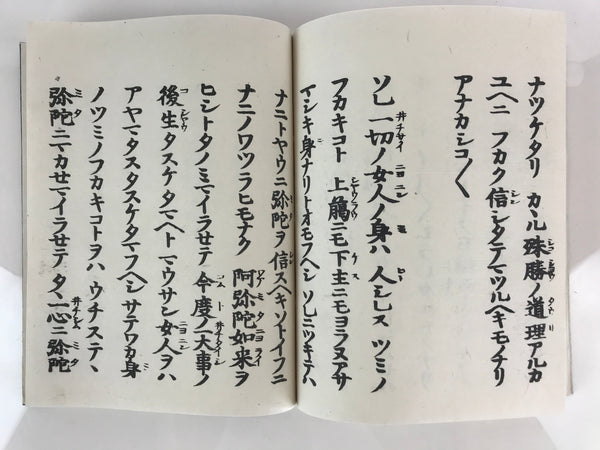 ナツケタリ カヽル殊勝ノ道理アルカ
ユヘニ フカク信シタテマツルヘキモノナリ
アナカシコ〱
ソレ一切ノ女人ノ身ハ 人シレス ツミノ
フカキコト 上﨟ニモ下主ニモヨラヌアサ
マシキ身ナリトオモフヘシ ソレニツキテハ
ナニトヤウニ弥陀ヲ信スヘキソトイフニ
ナニノワツラヒモナク 阿弥陀如来ヲ
ヒシトタノミマイラセテ 今度ノ大事ノ
後生タスケタマヘトマウサン女人ヲハ
アヤマタスタスケタマフヘシ サテワカ身
ノツミノフカキコトヲハ ウチステヽ
弥陀ニマカセマイラセテ タヽ一心ニ弥陀